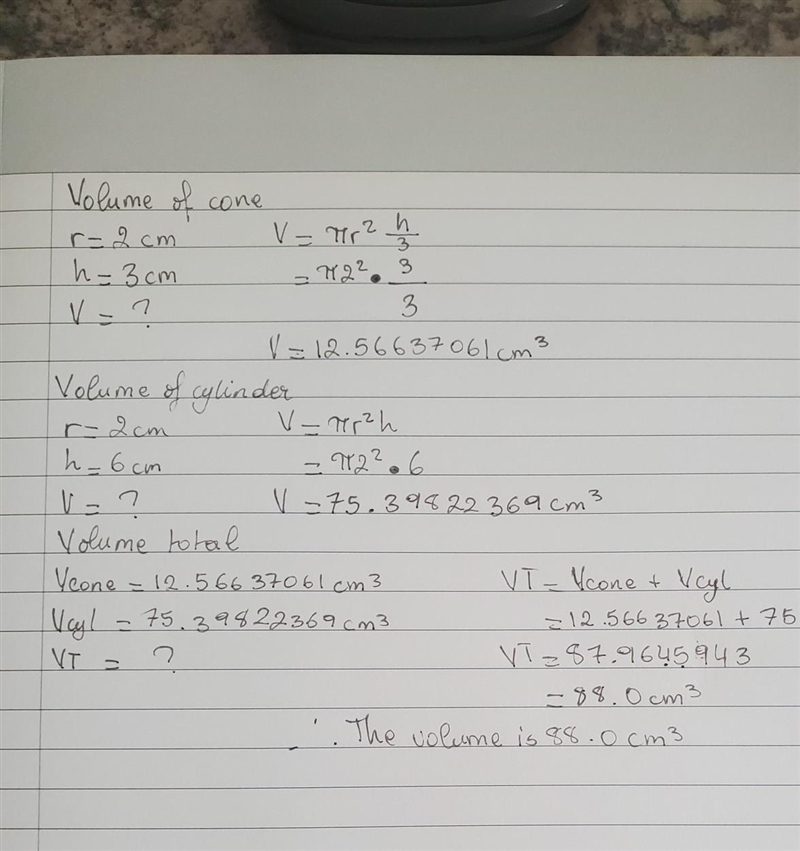 Volume of cone
r = 2 cm V = πr² h/3
h = 3 cm = π2² • 3/3
V = ?
V = 12.56637061 cm³
Volume of cylinder
r = 2 cm V = πr²h
h = 6 cm = π2² • 6
V = ? V = 75.39822369 cm³
Volume total
Vcone = 12.56637061 cm³ VT = Vcone + Vcyl
Vcyl = 75.39822369 cm³ = 12.56637061 + 75
VT = ? VT = 87.9645943
= 88.0 cm³
∴ The volume is 88.0 cm³